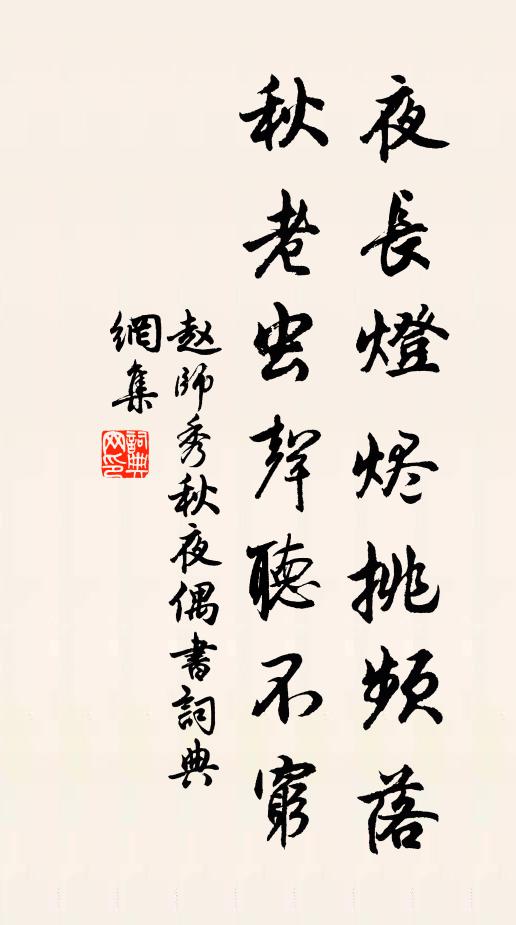 夜長燈烬挑頻落
秋老虫聲聽不窮
赵師秀秋夜偶書詞典
網集
詞典
网印